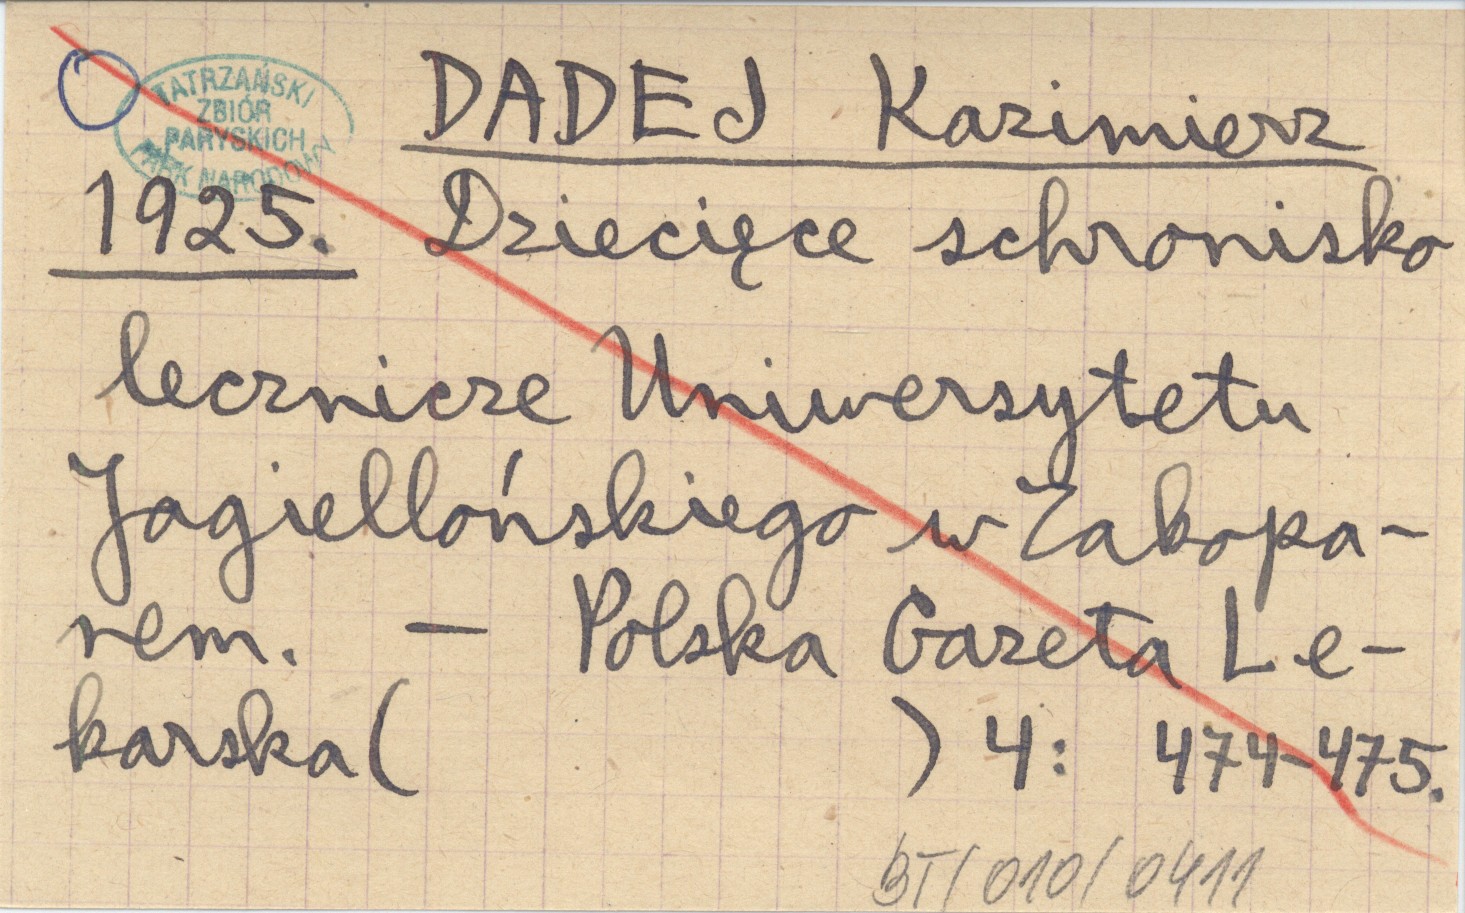 TATRZAŃSKI
ZBIÓR
PARYSKICH
PARK NARODOWY
DADEJ Kazimierz
1925. Dziecięce schronisko
lecznicze Uniwersytetu
Jagiellońskiego w Zakopa-
nem. — Polska Gazeta Le-
karska ( ) 4: 474-475.
BT/010/0411